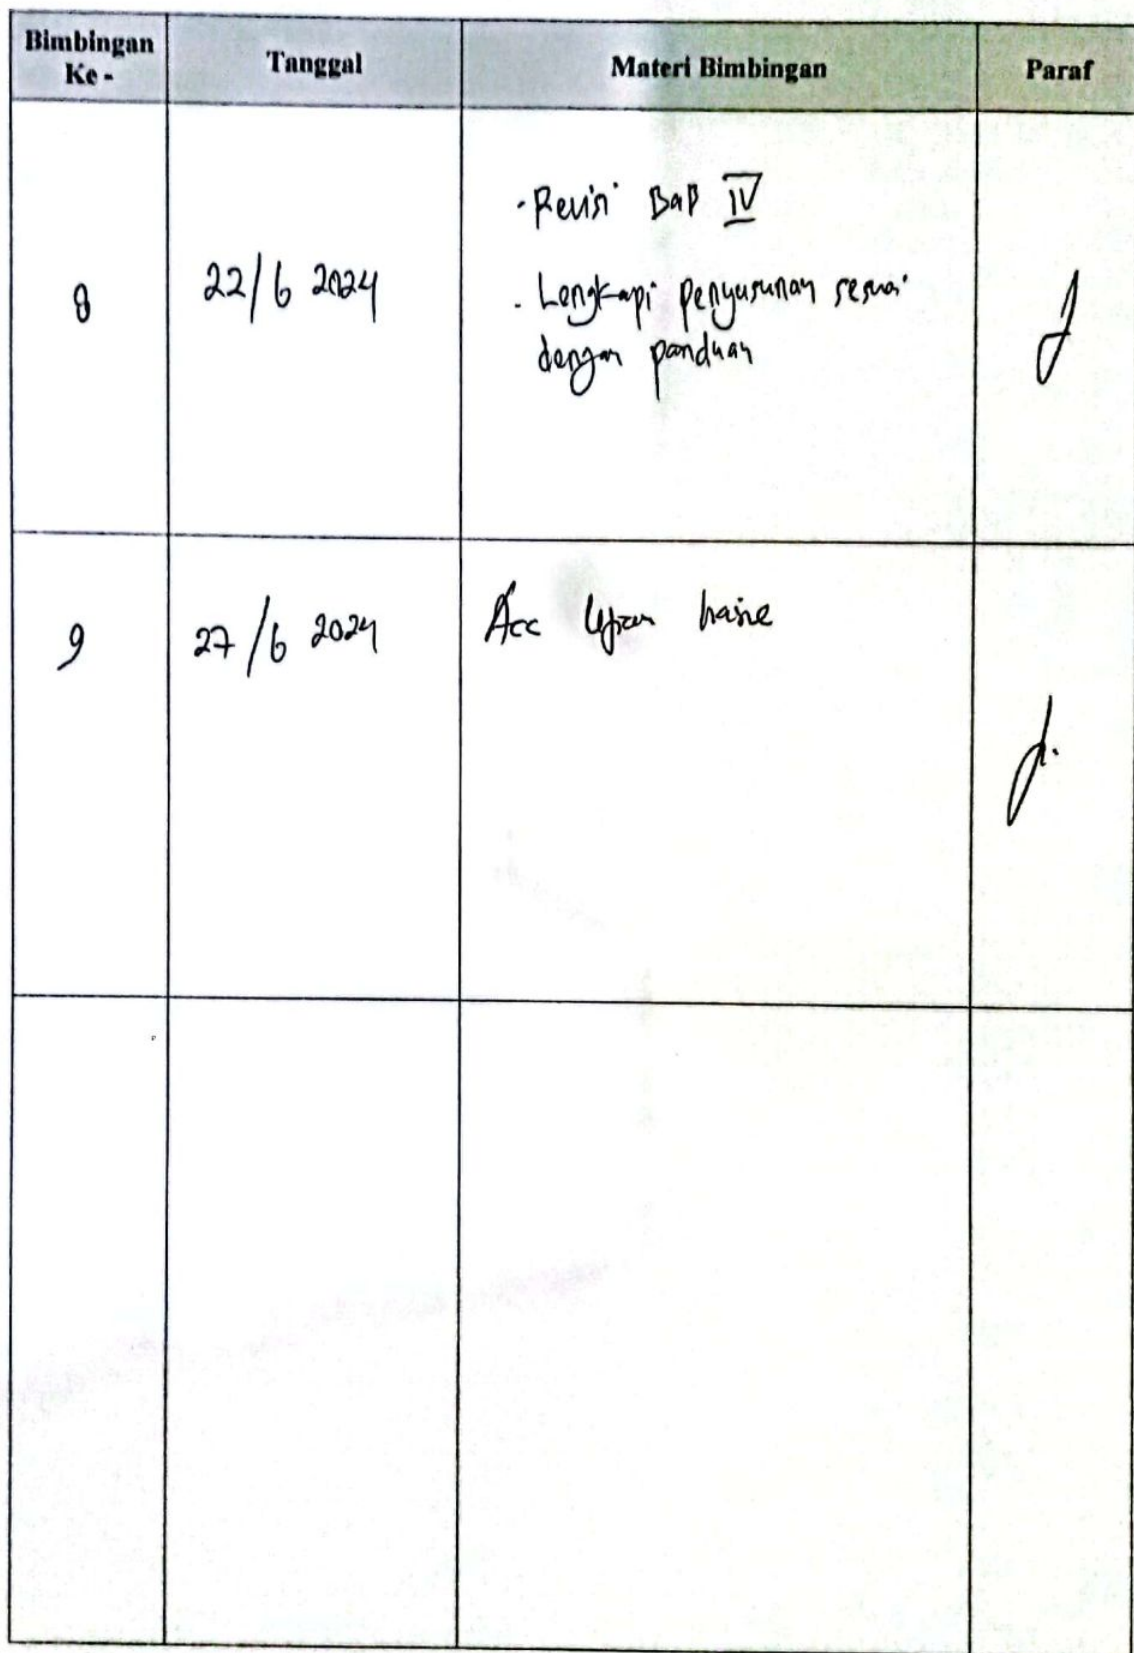 Bimbingan
Ke -
Tanggal
Materi Bimbingan
Paraf
8
22/6 2024
- Revisi BaB IV
- Lengkapi penyusunan sesuai
dengan panduan
9
27/6 2024
Acc Ujian hasil